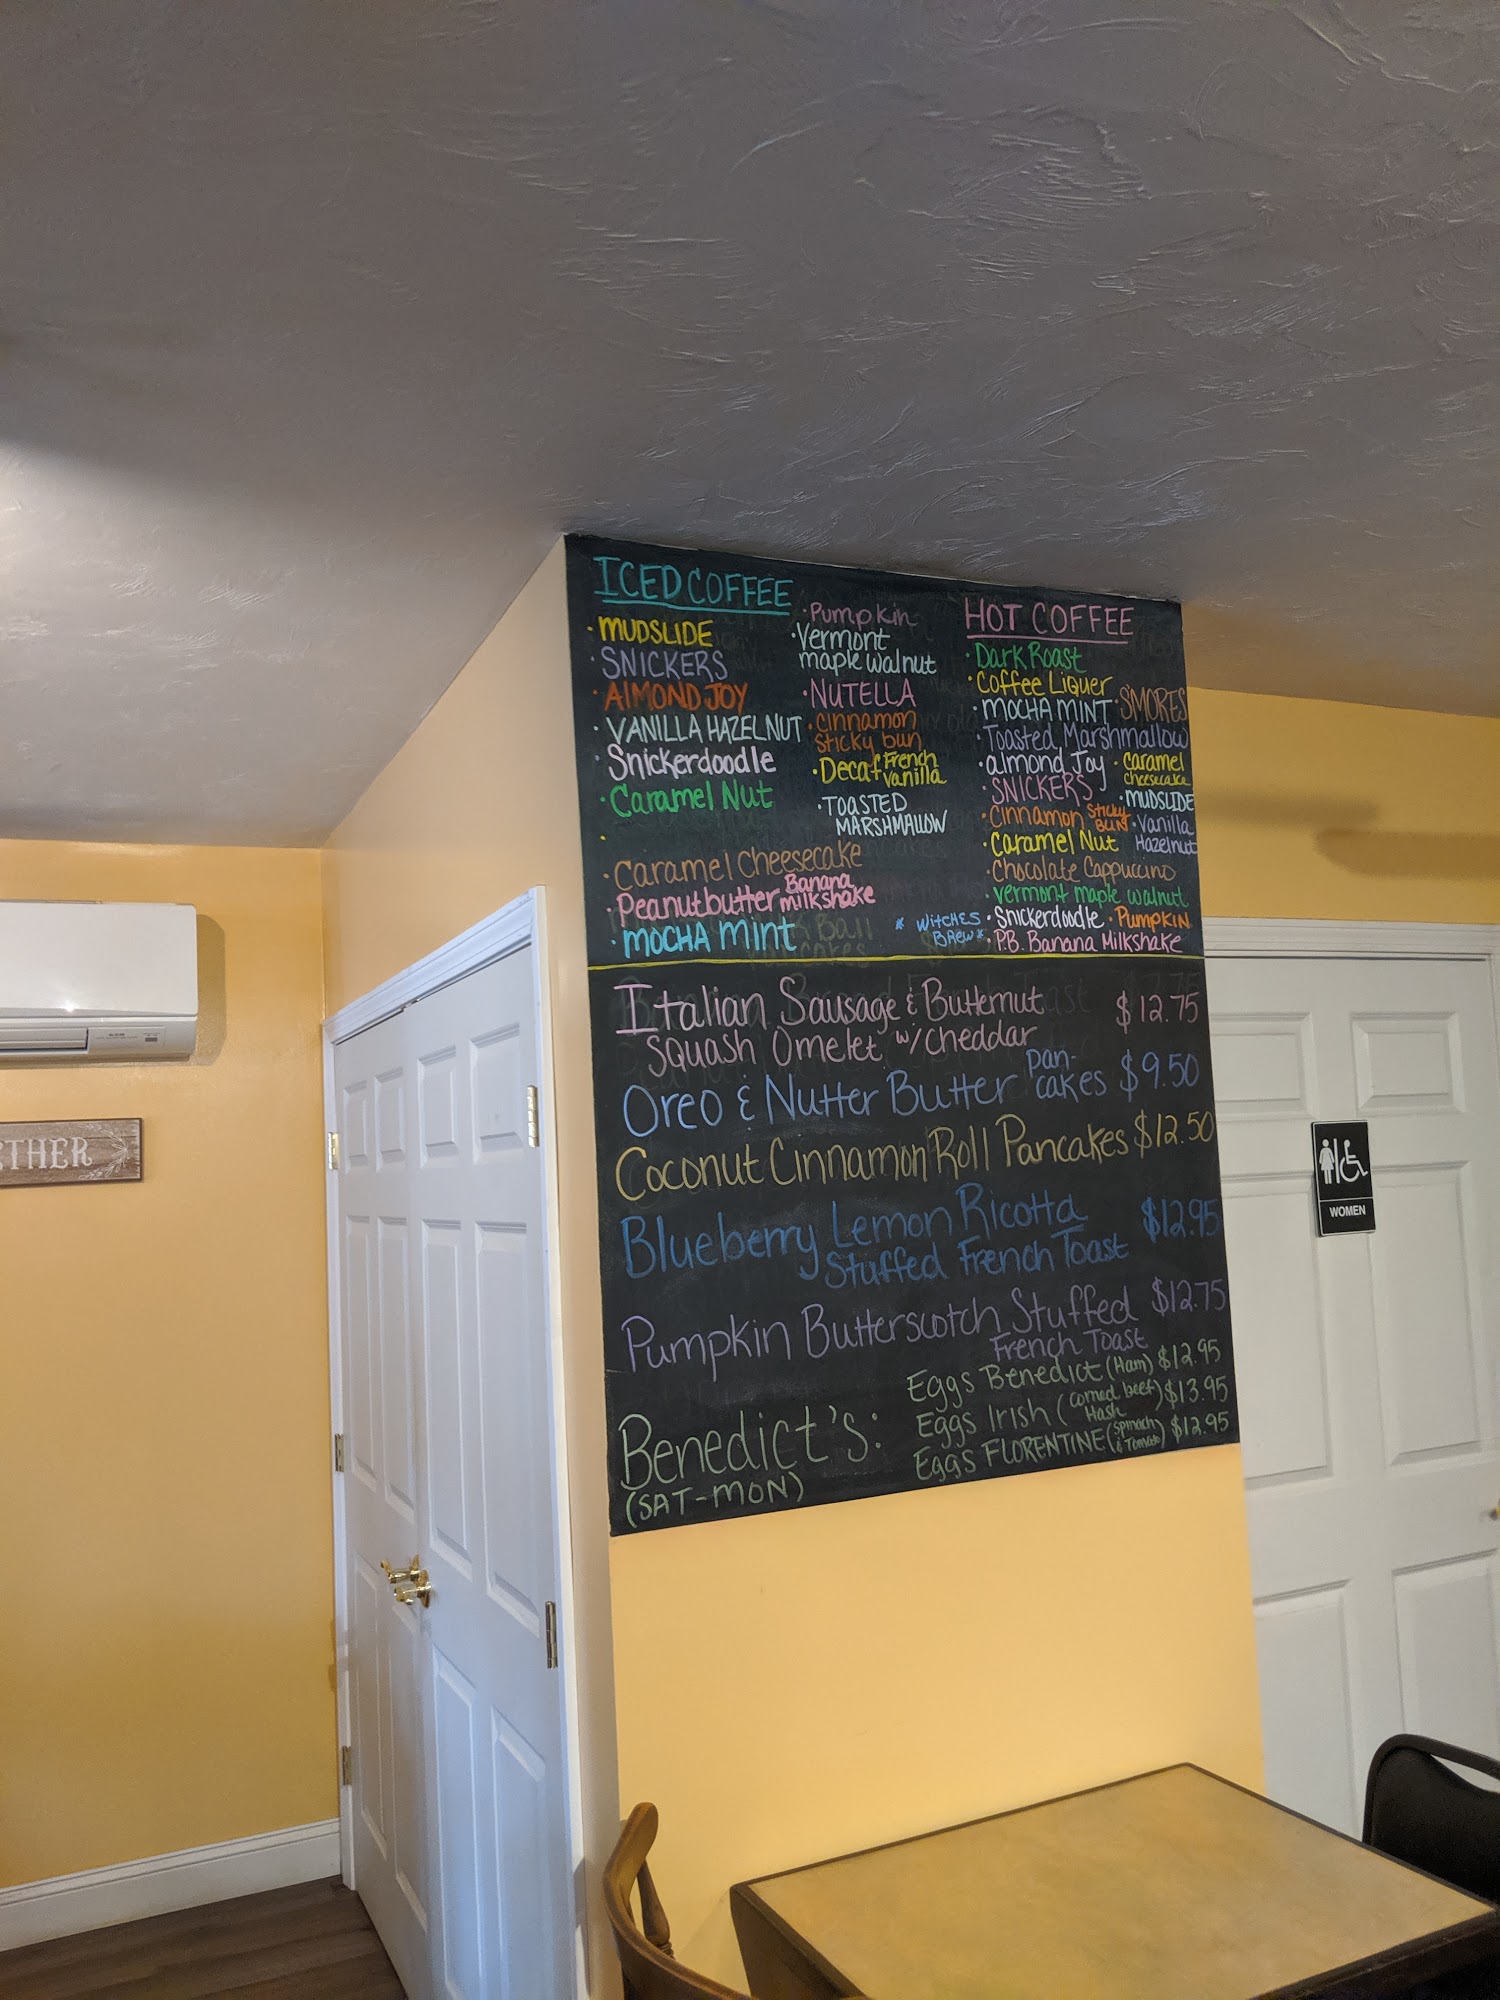 ICED COFFEE
· MUDSLIDE
· SNICKERS
· AlMOND JOY
· VANILLA HAZELNUT
· Snickerdoodle
· Caramel Nut
·
· Caramel Cheesecake
· Peanutbutter Banana Milkshake
· MOCHA Mint
· Pumpkin
· Vermont
maple walnut
· NUTELLA
· Cinnamon
Sticky bun
· Decaf French
Vanilla
· TOASTED
MARSHMALLOW
* WITCHES
BREW *
HOT COFFEE
· Dark Roast
· Coffee Liquer
· MOCHA MINT · S'MORES
· Toasted Marshmallow
· almond Joy · Caramel
cheesecake
· SNICKERS · MUDSLIDE
· Cinnamon Sticky BUN · Vanilla
Hazelnut
· Caramel Nut
· Chocolate Cappuccino
· Vermont maple walnut
· Snickerdoodle · PUMPKIN
· P.B. Banana Milkshake
Italian Sausage & Butternut $12.75
Squash Omelet w/ Cheddar
Oreo & Nutter Butter Pan-
cakes $9.50
Coconut Cinnamon Roll Pancakes $12.50
Blueberry Lemon Ricotta $12.95
Stuffed French Toast
Pumpkin Butterscotch Stuffed $12.75
French Toast
Benedict's:
(SAT-MON)
Eggs Benedict (Ham) $12.95
Eggs Irish (corned beef Hash) $13.95
Eggs FLORENTINE (spinach & Tomato) $12.95
WOMEN